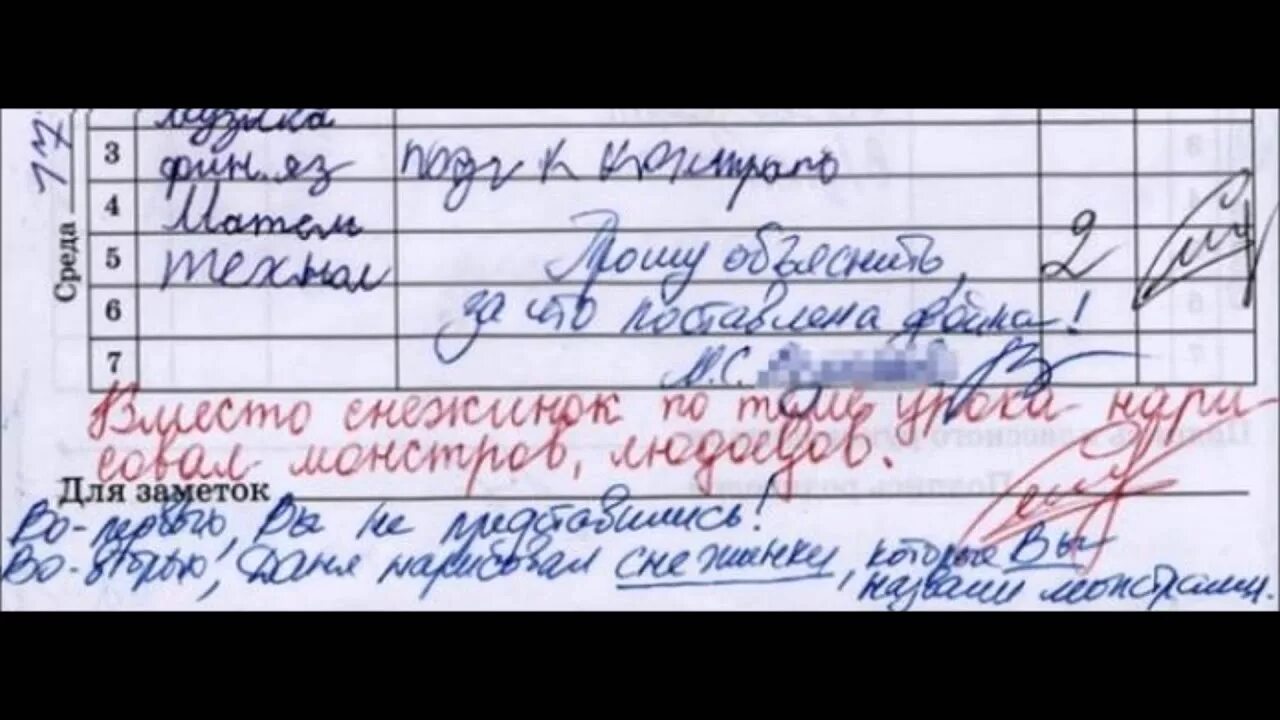 Среда 17
музыка
3 фин.яз подг к контраго
4 Матем
5 технол Прошу объяснить, 2
6 за что поставлена двойка!
7 М.С.
Вместо снежинок по теме урока нари
совал монстров, людоедов.
Для заметок
Во-первых, Вы не представились!
Во-вторых, Даня нарисовал снежинки, которые Вы
назвали монстрами.